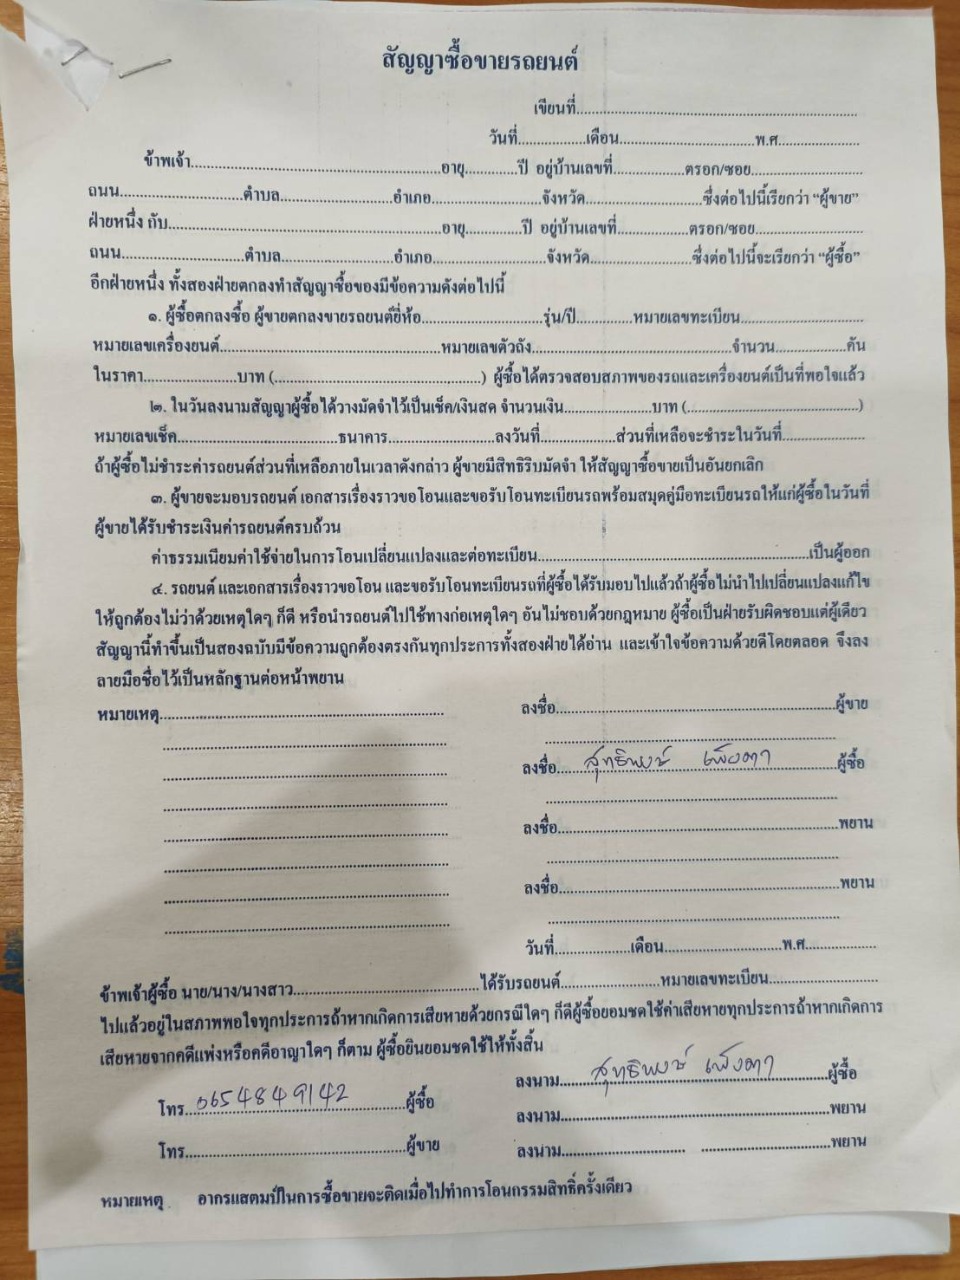 สัญญาซื้อขายรถยนต์
เขียนที่..............................
วันที่..............เดือน..............................พ.ศ..............
ข้าพเจ้า..............................อายุ..............ปี อยู่บ้านเลขที่..............ตรอก/ซอย..............
ถนน..............ตำบล..............อำเภอ..............จังหวัด..............ซึ่งต่อไปนี้เรียกว่า “ผู้ขาย”
ฝ่ายหนึ่ง กับ..............................อายุ..............ปี อยู่บ้านเลขที่..............ตรอก/ซอย..............
ถนน..............ตำบล..............อำเภอ..............จังหวัด..............ซึ่งต่อไปนี้จะเรียกว่า “ผู้ซื้อ”
อีกฝ่ายหนึ่ง ทั้งสองฝ่ายตกลงทำสัญญาซื้อของมีข้อความดังต่อไปนี้
๑. ผู้ซื้อตกลงซื้อ ผู้ขายตกลงขายรถยนต์ยี่ห้อ..............รุ่น/ปี..............หมายเลขทะเบียน..............
หมายเลขเครื่องยนต์..............................หมายเลขตัวถัง..............................จำนวน..............คัน
ในราคา..............บาท (..............................) ผู้ซื้อได้ตรวจสอบสภาพของรถและเครื่องยนต์เป็นที่พอใจแล้ว
๒. ในวันลงนามสัญญาผู้ซื้อได้วางมัดจำไว้เป็นเช็ค/เงินสด จำนวนเงิน..............บาท (..............................)
หมายเลขเช็ค..............................ธนาคาร..............ลงวันที่..............ส่วนที่เหลือจะชำระในวันที่..............
ถ้าผู้ซื้อไม่ชำระค่ารถยนต์ส่วนที่เหลือภายในเวลาดังกล่าว ผู้ขายมีสิทธิริบมัดจำ ให้สัญญาซื้อขายเป็นอันยกเลิก
๓. ผู้ขายจะมอบรถยนต์ เอกสารเรื่องราวขอโอนและขอรับโอนทะเบียนรถพร้อมสมุดคู่มือทะเบียนรถให้แก่ผู้ซื้อในวันที่
ผู้ขายได้รับชำระเงินค่ารถยนต์ครบถ้วน
ค่าธรรมเนียมค่าใช้จ่ายในการโอนเปลี่ยนแปลงและต่อทะเบียน..............................เป็นผู้ออก
๔. รถยนต์ และเอกสารเรื่องราวขอโอน และขอรับโอนทะเบียนรถที่ผู้ซื้อได้รับมอบไปแล้วถ้าผู้ซื้อไม่นำไปเปลี่ยนแปลงแก้ไข
ให้ถูกต้องไม่ว่าด้วยเหตุใดๆ ก็ดี หรือนำรถยนต์ไปใช้ทางก่อเหตุใดๆ อันไม่ชอบด้วยกฎหมาย ผู้ซื้อเป็นฝ่ายรับผิดชอบแต่ผู้เดียว
สัญญานี้ทำขึ้นเป็นสองฉบับมีข้อความถูกต้องตรงกันทุกประการทั้งสองฝ่ายได้อ่าน และเข้าใจข้อความด้วยดีโดยตลอด จึงลง
ลายมือชื่อไว้เป็นหลักฐานต่อหน้าพยาน
หมายเหตุ..............................
ลงชื่อ..............................ผู้ขาย
ลงชื่อ....สุทธิพงษ์ เพ็งตา....ผู้ซื้อ
ลงชื่อ..............................พยาน
ลงชื่อ..............................พยาน
วันที่..............เดือน..............................พ.ศ..............
ข้าพเจ้าผู้ซื้อ นาย/นาง/นางสาว..............................ได้รับรถยนต์..............หมายเลขทะเบียน..............
ไปแล้วอยู่ในสภาพพอใจทุกประการถ้าหากเกิดการเสียหายด้วยกรณีใดๆ ก็ดีผู้ซื้อยอมชดใช้ค่าเสียหายทุกประการถ้าหากเกิดการ
เสียหายจากคดีแพ่งหรือคดีอาญาใดๆ ก็ตาม ผู้ซื้อยินยอมชดใช้ให้ทั้งสิ้น
ลงนาม....สุทธิพงษ์ เพ็งตา....ผู้ซื้อ
โทร. 0654849142 ผู้ซื้อ
ลงนาม..............................พยาน
โทร..............................ผู้ขาย
ลงนาม..............................พยาน
หมายเหตุ อากรแสตมป์ในการซื้อขายจะติดเมื่อไปทำการโอนกรรมสิทธิ์ครั้งเดียว